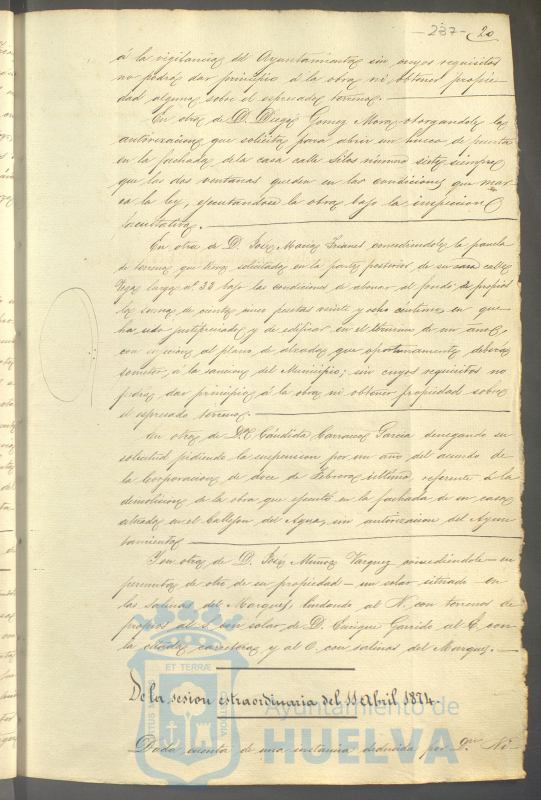 — 237 — 20
á la vigilancia del Ayuntamiento sin cuyos requisitos
no podrá dar principio á la obra ni obtener propie-
dad alguna sobre el espresado terreno.
En otra de D. Diego Gomez Mora otorgandole la
autorizacion que solicita para abrir un hueco de puerta
en la fachada de la casa calle Silos número siete siempre
que las dos ventanas queden en las condiciones que mar-
ca la ley, ejecutandose la obra bajo la inspeccion
facultativa.
En otra de D. José Macías concediendole la parcela
de terreno que tiene solicitada en la parte posterior de su casa calle
Vega larga nº 33 bajo las condiciones de abonar al fondo de propios
la suma de ciento cinco pesetas veinte y ocho céntimos en que
ha sido justipreciado y de edificar en el término de un año,
con sujecion al plano de alzada que oportunamente deberá
someter á la sancion del Municipio; sin cuyos requisitos no
podrá dar principio á la obra ni obtener propiedad sobre
el espresado terreno.
En otra de Dª Cándida Carrasco Garcia denegando su
solicitud pidiendo la suspension por un año del acuerdo de
la Corporacion de doce de Febrero último referente á la
demolicion de la obra que ejecutó en la fachada de su casa
situada en el Callejon del Agua, sin autorizacion del Ayun-
tamiento
Y en otra de D. José Muñoz Vazquez concediendole – en
permuta de otro de su propiedad – un solar situado en
las Salinas del Marqués, lindando al N. con terrenos de
propios al S. con solar de D. Enrique Garrido al E. con
la carretera y al O. con salinas del Marqués.
De la sesion extraordinaria del 11 Abril 1874
Dada cuenta de una instancia deducida por D.
ET TERRÆ
Ayuntamiento de
HUELVA